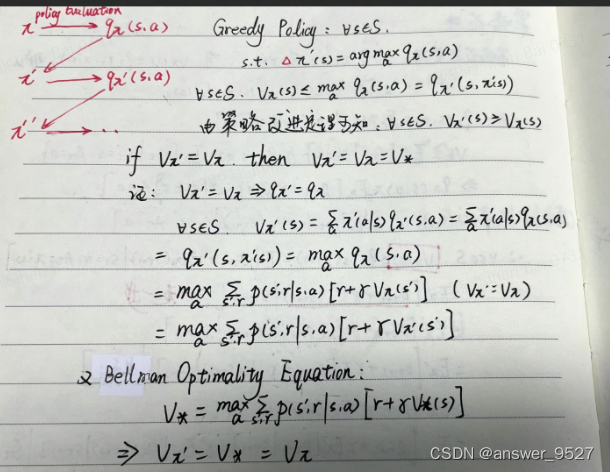 policy Evaluation
π → qπ(s,a) Greedy Policy: ∀s∈S.
s.t. △ π'(s) = arg max_a qπ(s,a)
π' → qπ'(s,a)
∀s∈S. Vπ(s) ≤ max_a qπ(s,a) = qπ'(s,π'(s))
π'' → ... 由策略改进定理可知, ∀s∈S. Vπ'(s) ≥ Vπ(s)
if Vπ' = Vπ then Vπ' = Vπ = V*
证: Vπ' = Vπ ⇒ qπ' = qπ
∀s∈S. Vπ'(s) = Σ_a π'(a|s) qπ'(s,a) = Σ_a π'(a|s) qπ(s,a)
= qπ'(s,π'(s)) = max_a qπ(s,a)
= max_a Σ_s',r p(s',r|s,a) [r+γVπ(s')] (Vπ'=Vπ)
= max_a Σ_s',r p(s',r|s,a) [r+γVπ'(s')]
又 Bellman Optimality Equation:
V* = max_a Σ_s',r p(s',r|s,a) [r+γV*(s)]
⇒ Vπ' = V* = Vπ
CSDN @answer_9527